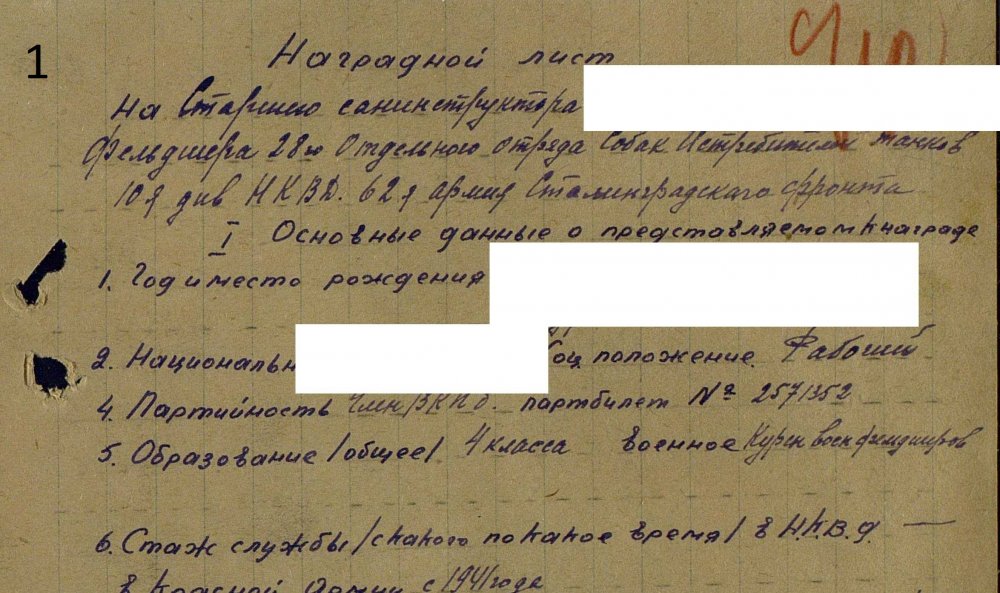 1
Наградной лист
на Старшего санинструктора
Фельдшера 28го Отдельного отряда Собак Истребителей танков
10я див НКВД. 62я армия Сталинградского фронта
I Основные данные о представляемом к награде
1. Год и место рождения
2. Национальн соц. положение. Рабочий
4. Партийность Член ВКП б. партбилет № 2571352
5. Образование /общее/ 4 класса военное Курсы воен фельдшеров
6. Стаж службы /с какого по какое время/ в Н.К.В.Д. —
в Красной Армии с 1941 года